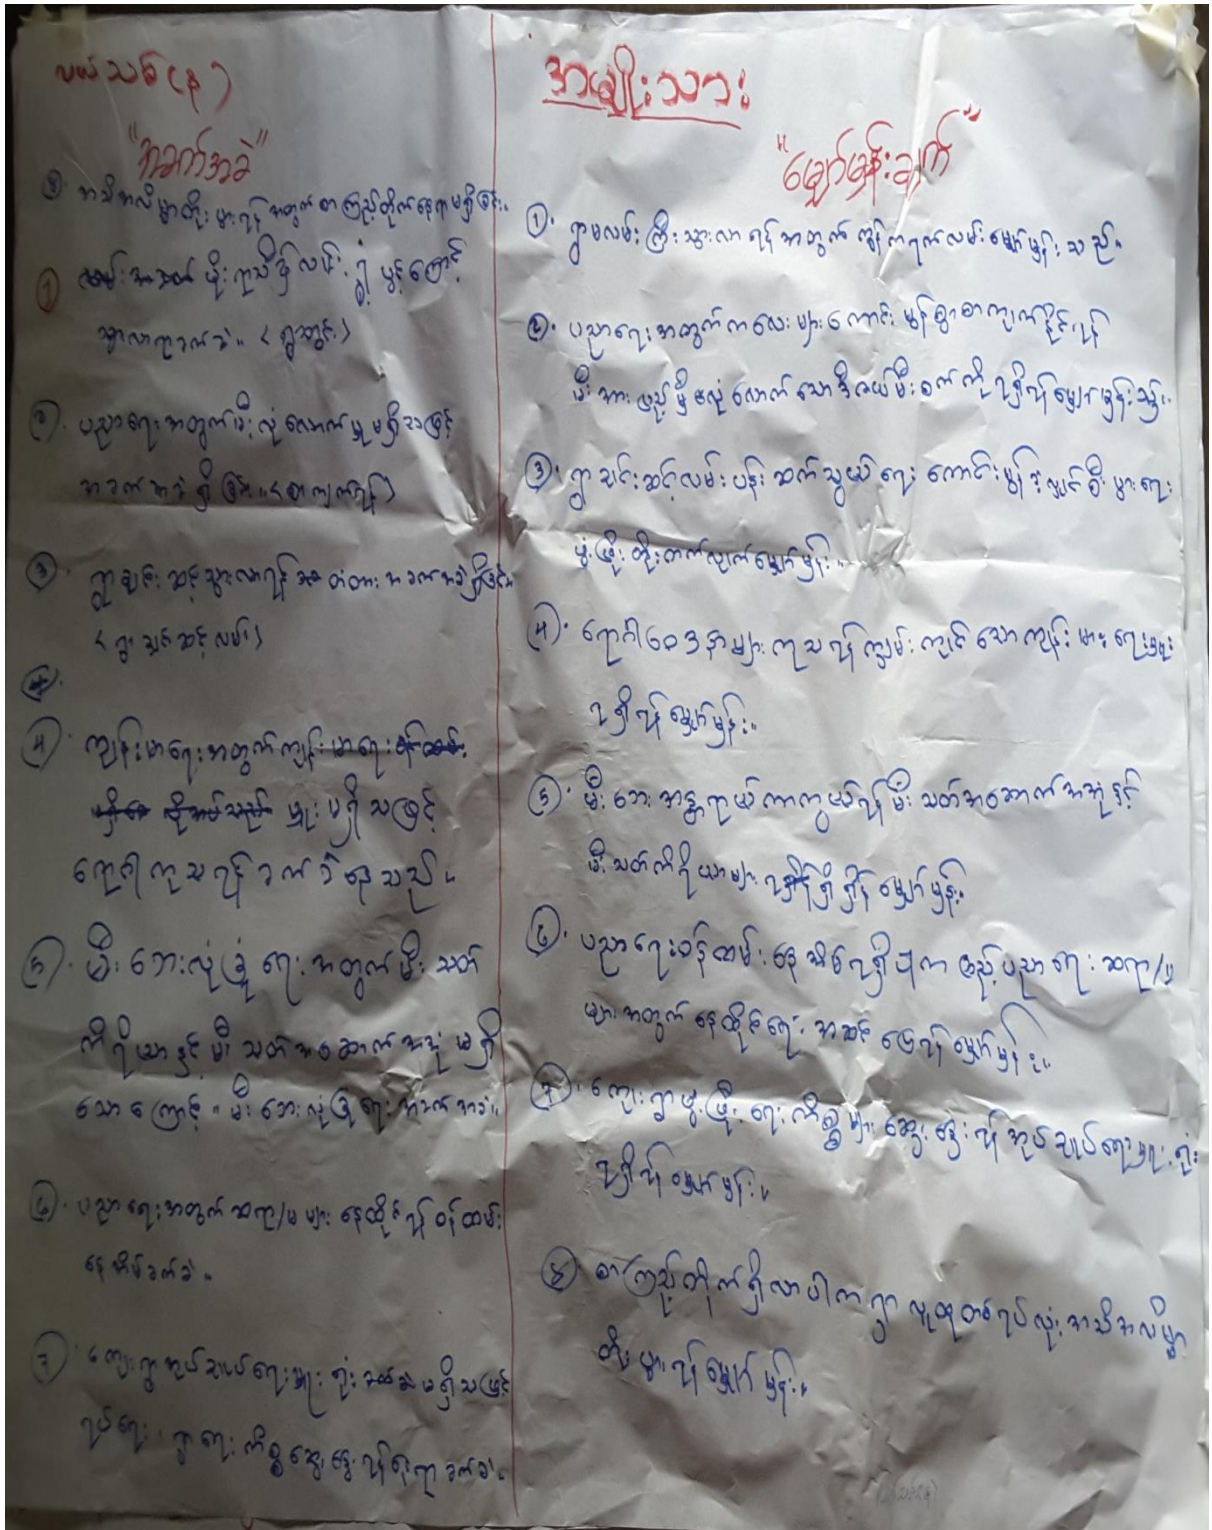 လယ်သစ်(န)
"အခက်အခဲ"
၈. အသိအလိမ္မာတိုးပွားရန် အတွက် စာကြည့်တိုက်နေရာမရှိခြင်း။
၁ မိုးရာသီ၌ လမ်း ရွှံ့ပွင့်ကြောင့်
သွားလာရခက်ခဲ။ (ရွာတွင်း)
၂. ပညာရေးအတွက် မီးလုံလောက်မှုမရှိသဖြင့်
အခက်အခဲရှိခြင်း။ (စာကျက်ရန်)
၃. ရွာချင်းဆင့်သွားလာရန် တံတား အခက်အခဲရှိခြင်း။
(ရွာချင်းဆင့်လမ်း)
၄. ကျန်းမာရေးအတွက် ကျန်းမာရေး
မှူး မရှိသဖြင့်
ရောဂါကုသရန် ခက်ခဲနေသည်။
၅. မီးဘေးလုံခြုံရေးအတွက် မီးသတ်
ကိရိယာနှင့် မီးသတ်အဆောက်အအုံမရှိ
သောကြောင့်။ မီးဘေးလုံခြုံရေး အခက်အခဲ။
၆. ပညာရေးအတွက် ဆရာ/မများ နေထိုင်ရန် ဝန်ထမ်း
နေအိမ်ခက်ခဲ။
၇. ကျေးရွာအုပ်ချုပ်ရေးမှူးရုံး မရှိသဖြင့်
ရပ်ရေး၊ ရွာရေးကိစ္စဆွေးနွေးရန် ခက်ခဲ။
အမျိုးသား
"မျှော်မှန်းချက်"
၁. ရွာမလမ်းကြီးသွားလာရန်အတွက် ကွန်ကရက်လမ်းမျှော်မှန်းသည်။
၂. ပညာရေးအတွက် ကလေးများကောင်းမွန်စွာစာကျက်နိုင်ရန်
မီးအားမြှင့်မီလုံလောက်သော ဒီဇယ်မီးစက်ကိုရရှိရန်မျှော်မှန်းသည်။
၃. ရွာချင်းဆင့်လမ်းပန်းဆက်သွယ်ရေးကောင်းမွန်ခဲ့လျှင် စီးပွားရေး
ဖွံ့ဖြိုးတိုးတက်လျက်မျှော်မှန်း။
၄. ရောဂါဝေဒနာများကုသရန် ကျွမ်းကျင်သော ကျန်းမာရေးမှူး
ရရှိရန်မျှော်မှန်း။
၅. မီးဘေးအန္တရာယ်ကာကွယ်ရန် မီးသတ်အဆောက်အအုံနှင့်
မီးသတ်ကိရိယာများ ရရှိရန်မျှော်မှန်း။
၆. ပညာရေးဝန်ထမ်းနေအိမ်ရရှိပါက ပညာရေးဆရာ/မ
များအတွက်နေထိုင်ရေး အဆင်ပြေရန်မျှော်မှန်း။
၇. ကျေးရွာဖွံ့ဖြိုးရေးကိစ္စများဆွေးနွေးရန် အုပ်ချုပ်ရေးမှူးရုံး
ရရှိရန်မျှော်မှန်း။
၈. စာကြည့်တိုက်ရှိလာပါက ရွာလူထုတစ်ရပ်လုံးအသိအလိမ္မာ
တိုးပွားရန်မျှော်မှန်း။